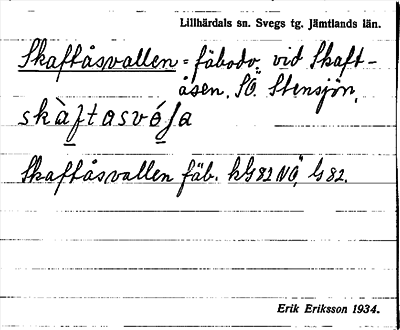 Lillhärdals sn. Svegs tg. Jämtlands län.
Skaftåsvallen = fäbodv. vid Skaft-
åsen, SÖ. Stensjön,
Skaftåsvallen fäb. kG82NÖ, G82.
Erik Eriksson 1934.